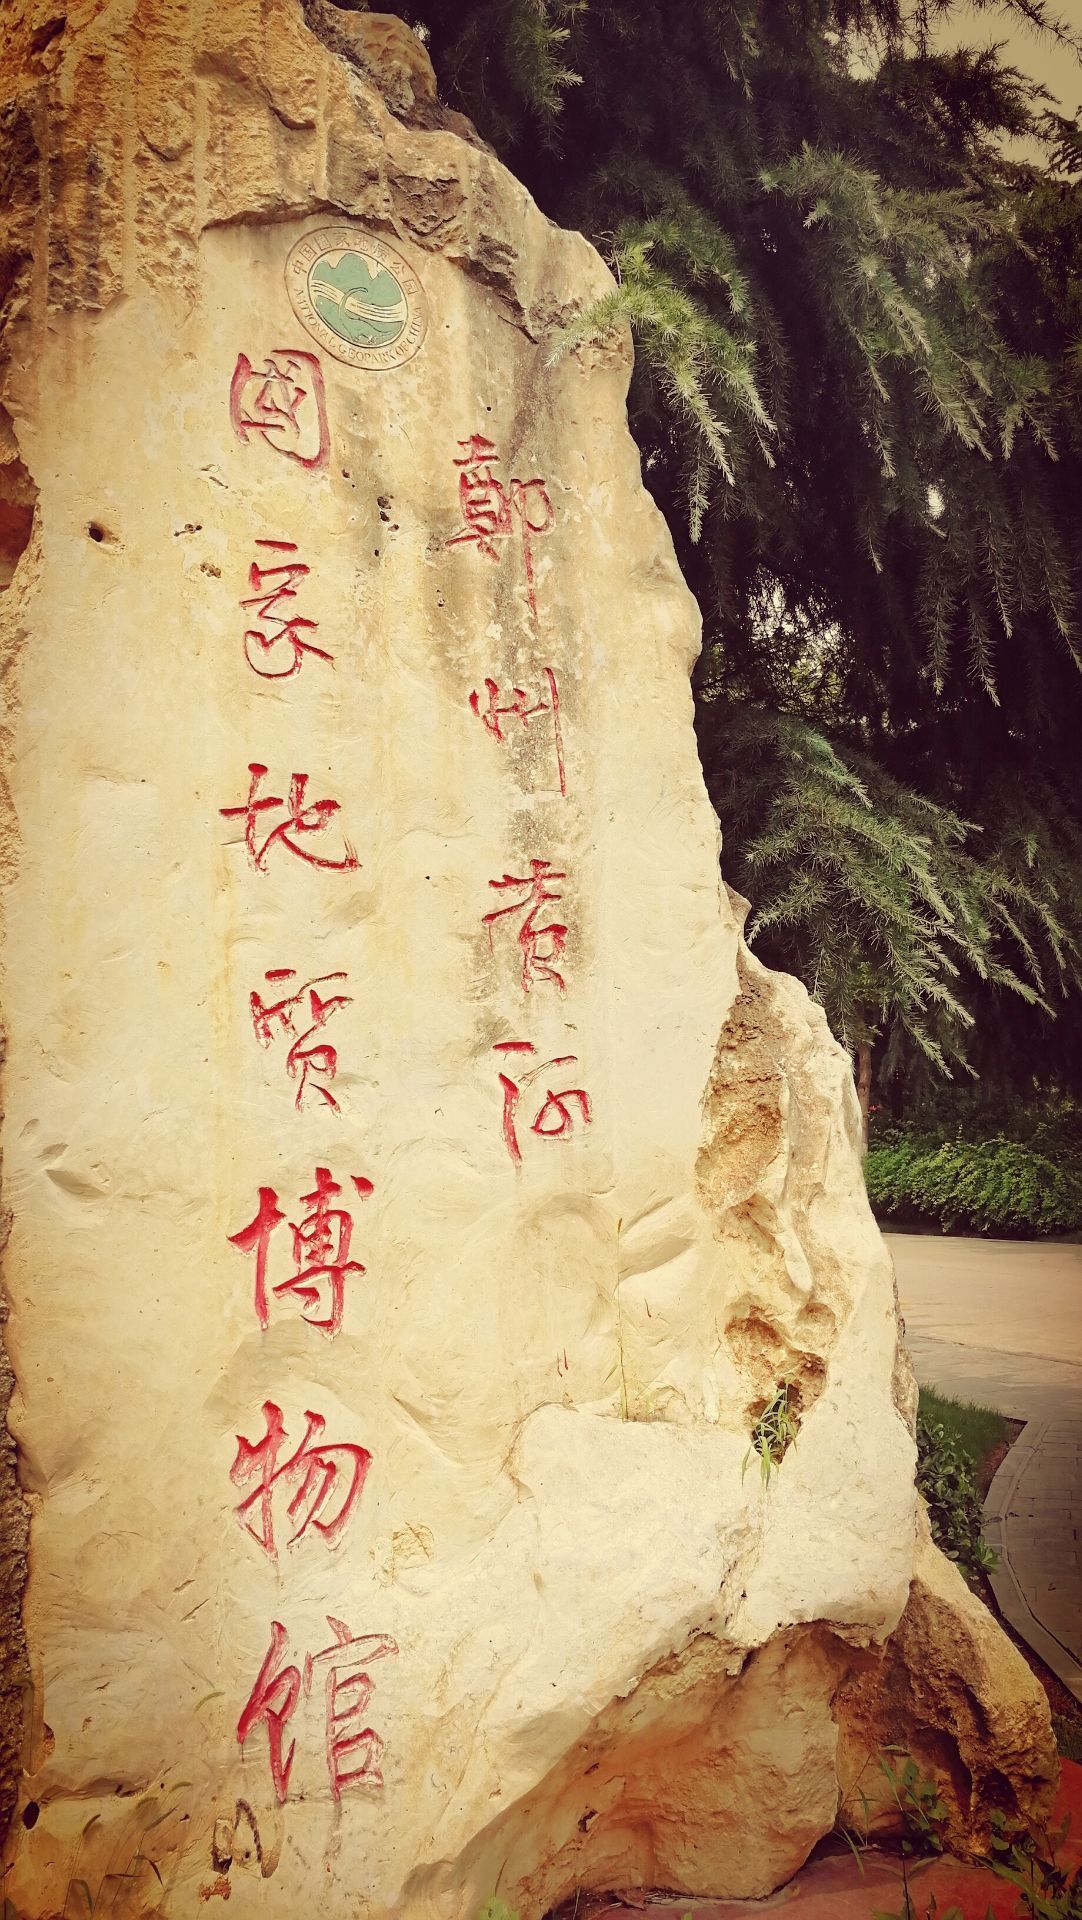 鄭州黄河
國家地質博物馆
中国国家地质公园
NATIONAL GEOPARK OF CHINA